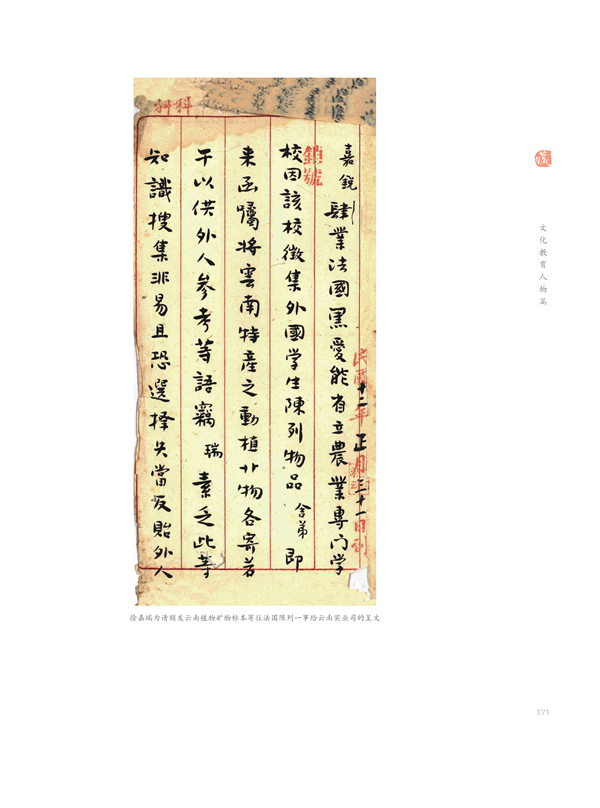 嘉銳
肄業法國黑愛能省立農業專门学
校因該校徵集外國学生陳列物品舍弟即
来函囑將雲南特產之動植廾物各寄若
干以供外人參考等語竊瑞素乏此等
知識搜集非易且恐選擇失當反貽外人
民國十二年正月三十一日到
鎖號
科科
徐嘉瑞为请颁发云南植物矿物标本寄往法国陈列一事给云南实业司的呈文
文化教育人物篇
171